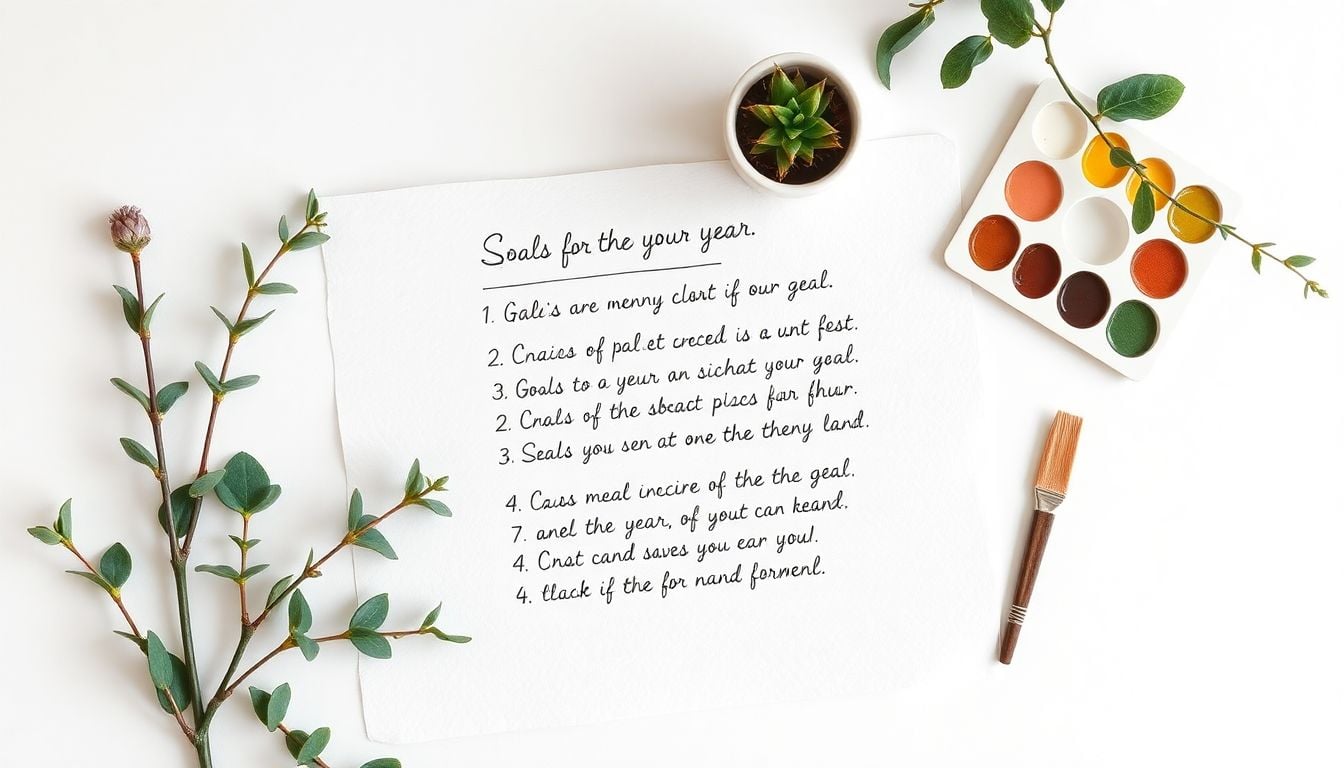 Soals for the your year.
1. Gali's are menny clart if our geal.
2. Cnaies of pal.et creced is a unt fest.
3. Goals to a yeur an sichat your goal.
2. Cnals of the sbcact pizcs four fhur.
3. Seals you sen at one the theny land.
4. Caus meal inccire of the the geal.
7. anel the year, of yout can keand.
4. Cnst cand saves you ear you!.
4. tlack if the for nand forment.